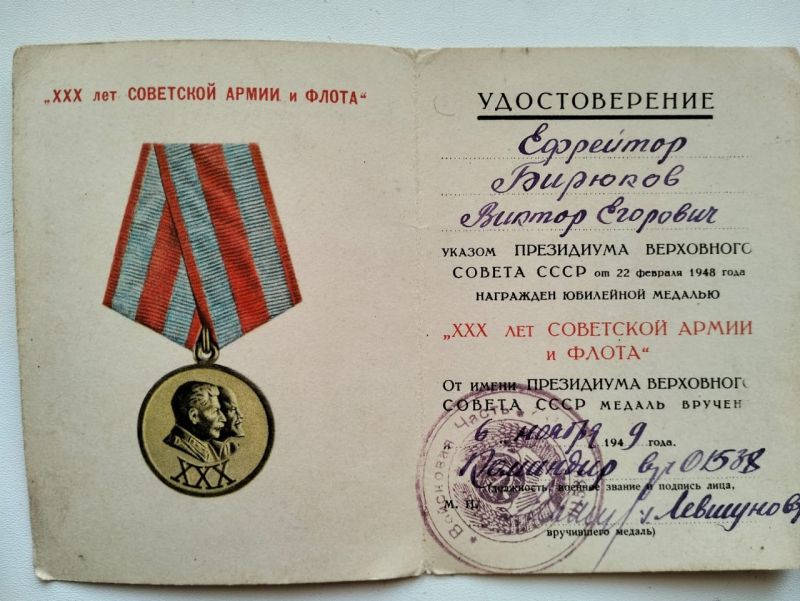 „XXX лет СОВЕТСКОЙ АРМИИ и ФЛОТА“
XXX
УДОСТОВЕРЕНИЕ
Ефрейтор
Бирюков
Виктор Егорович
УКАЗОМ ПРЕЗИДИУМА ВЕРХОВНОГО
СОВЕТА СССР от 22 февраля 1948 года
НАГРАЖДЕН ЮБИЛЕЙНОЙ МЕДАЛЬЮ
„XXX ЛЕТ СОВЕТСКОЙ АРМИИ
и ФЛОТА“
От имени ПРЕЗИДИУМА ВЕРХОВНОГ
СОВЕТА СССР МЕДАЛЬ ВРУЧЕН
6 ноября 1949 года.
Командир в/ч 01538
(должность, военное звание и подпись лица,
М. П. Левшунов
вручившего медаль)
Войсковая Часть